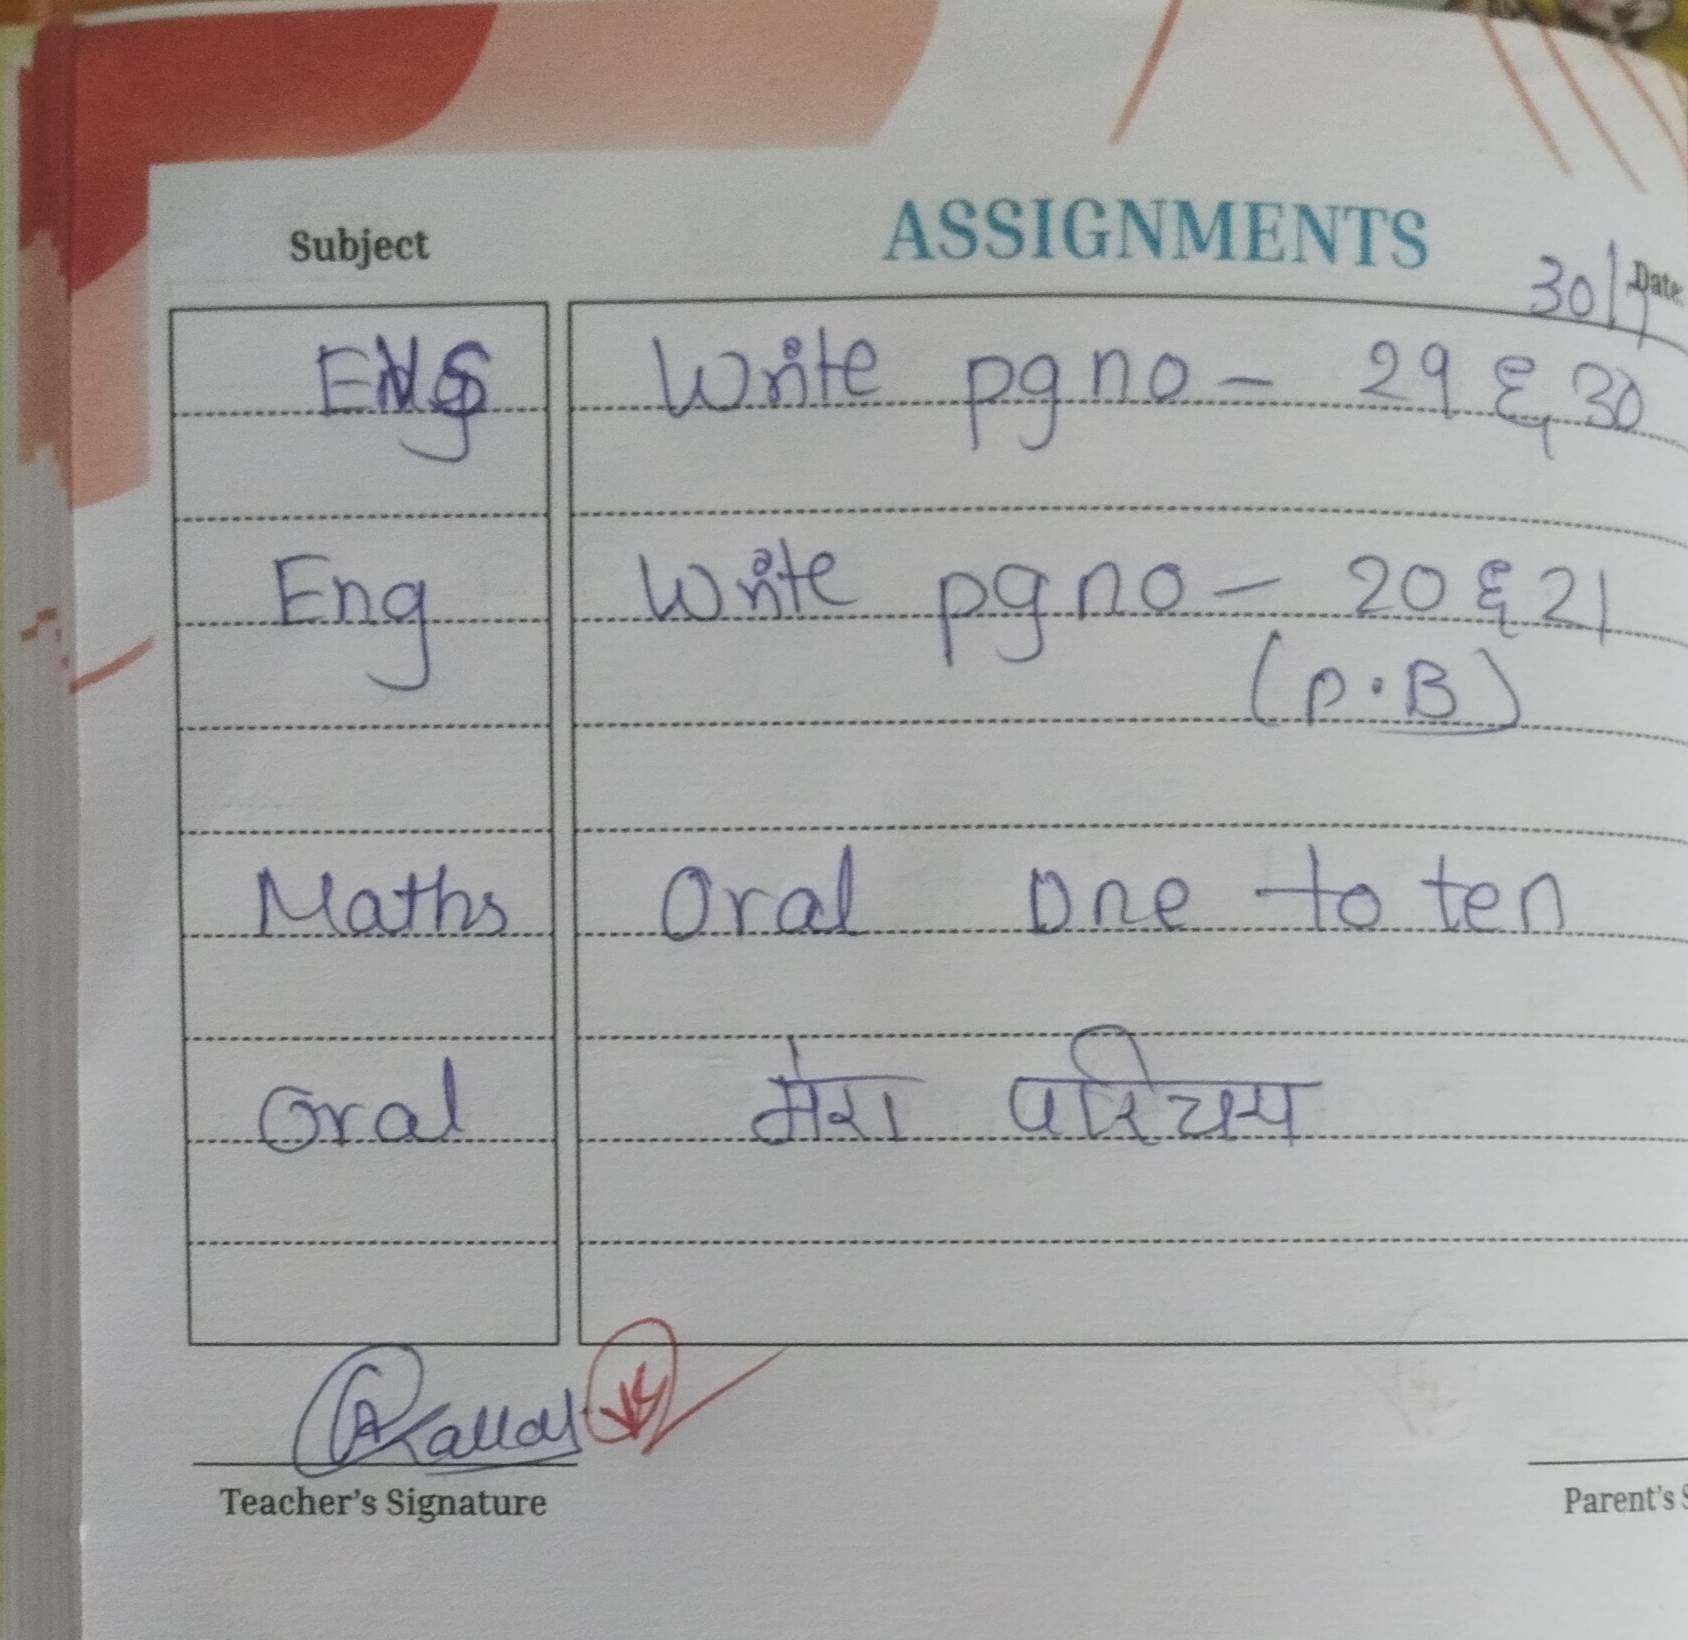 Subject
ASSIGNMENTS
30/7 Date:
Write pg no - 29 & 30
Eng
Write pg no - 20 & 21
(P.B)
Maths
Oral One to ten
Oral
मेरा परिचय
Teacher's Signature
Parent's S